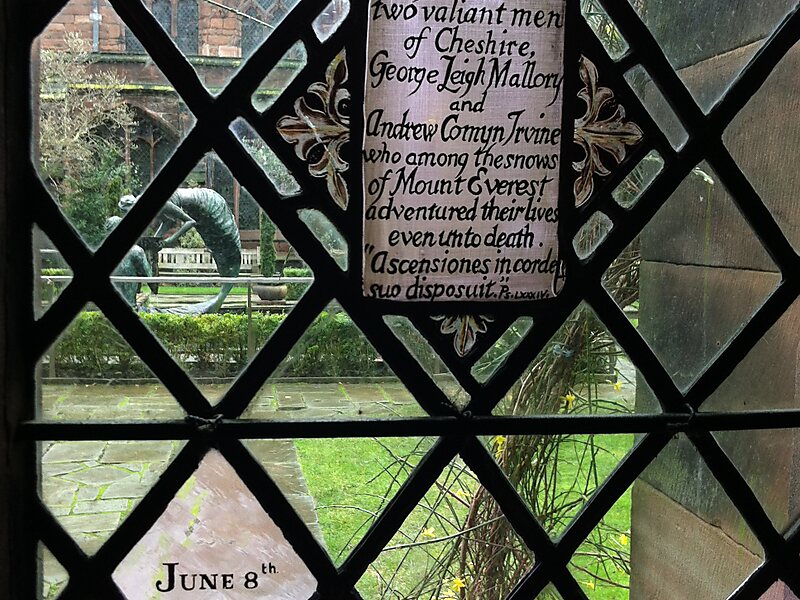 two valiant men
of Cheshire,
George Leigh Mallory
and
Andrew Comyn Irvine
who among the snows
of Mount Everest
adventured their lives
even unto death.
"Ascensiones in corde
suo disposuit." Ps. LXXXIV.
JUNE 8th